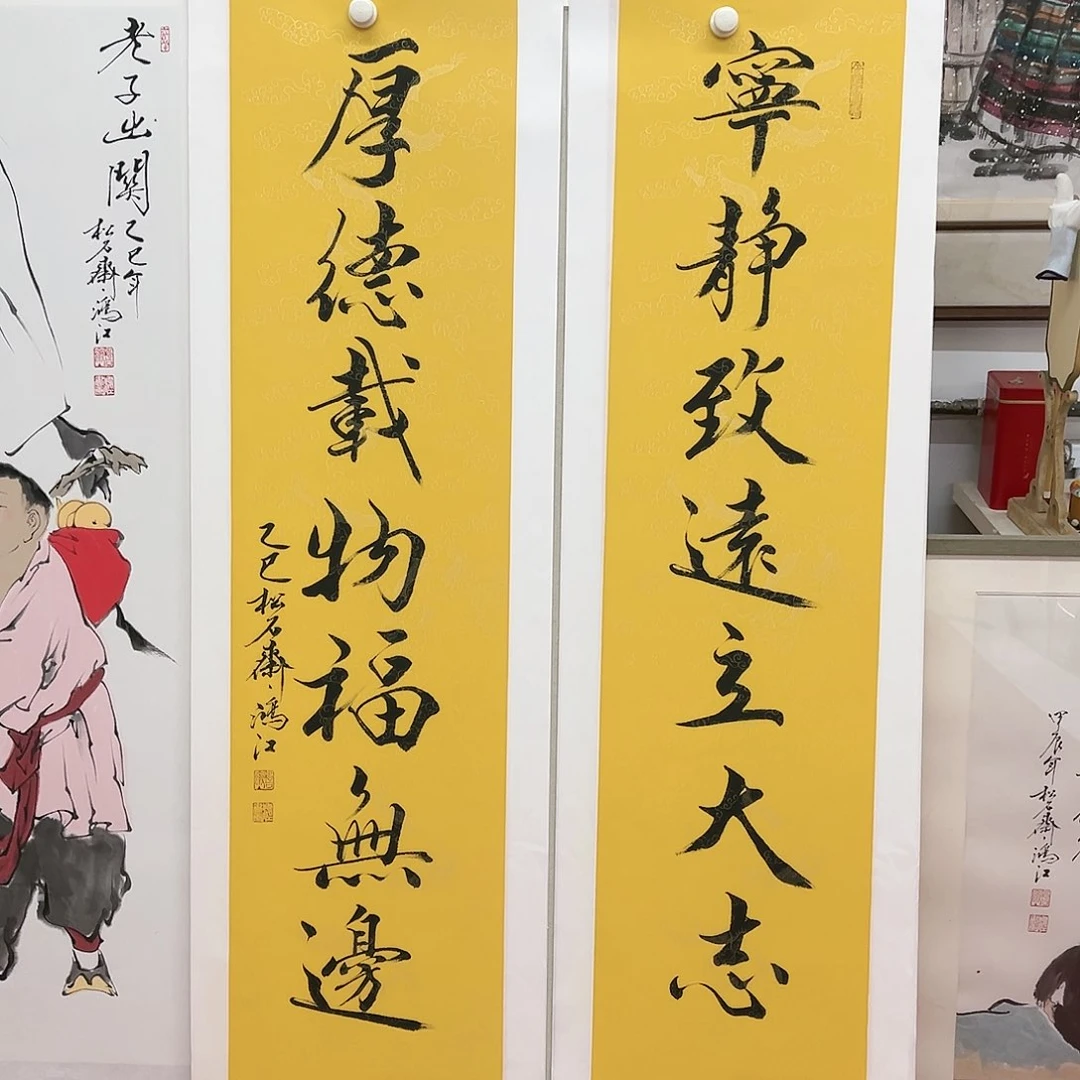 寧靜致遠立大志
厚德載物福無邊
乙巳松石齋鴻江
老子出關
乙巳年
松石齋鴻江
甲辰年
松石齋鴻江